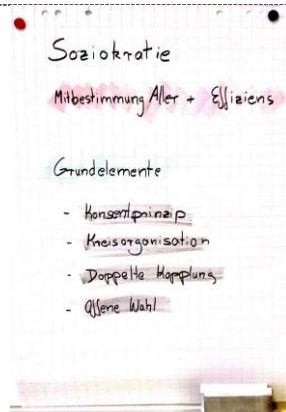 Soziokratie
Mitbestimmung Aller + Effiziens
Grundelemente
- Konsentprinzip
- Kreisorganisation
- Doppelte Kopplung
- Offene Wahl